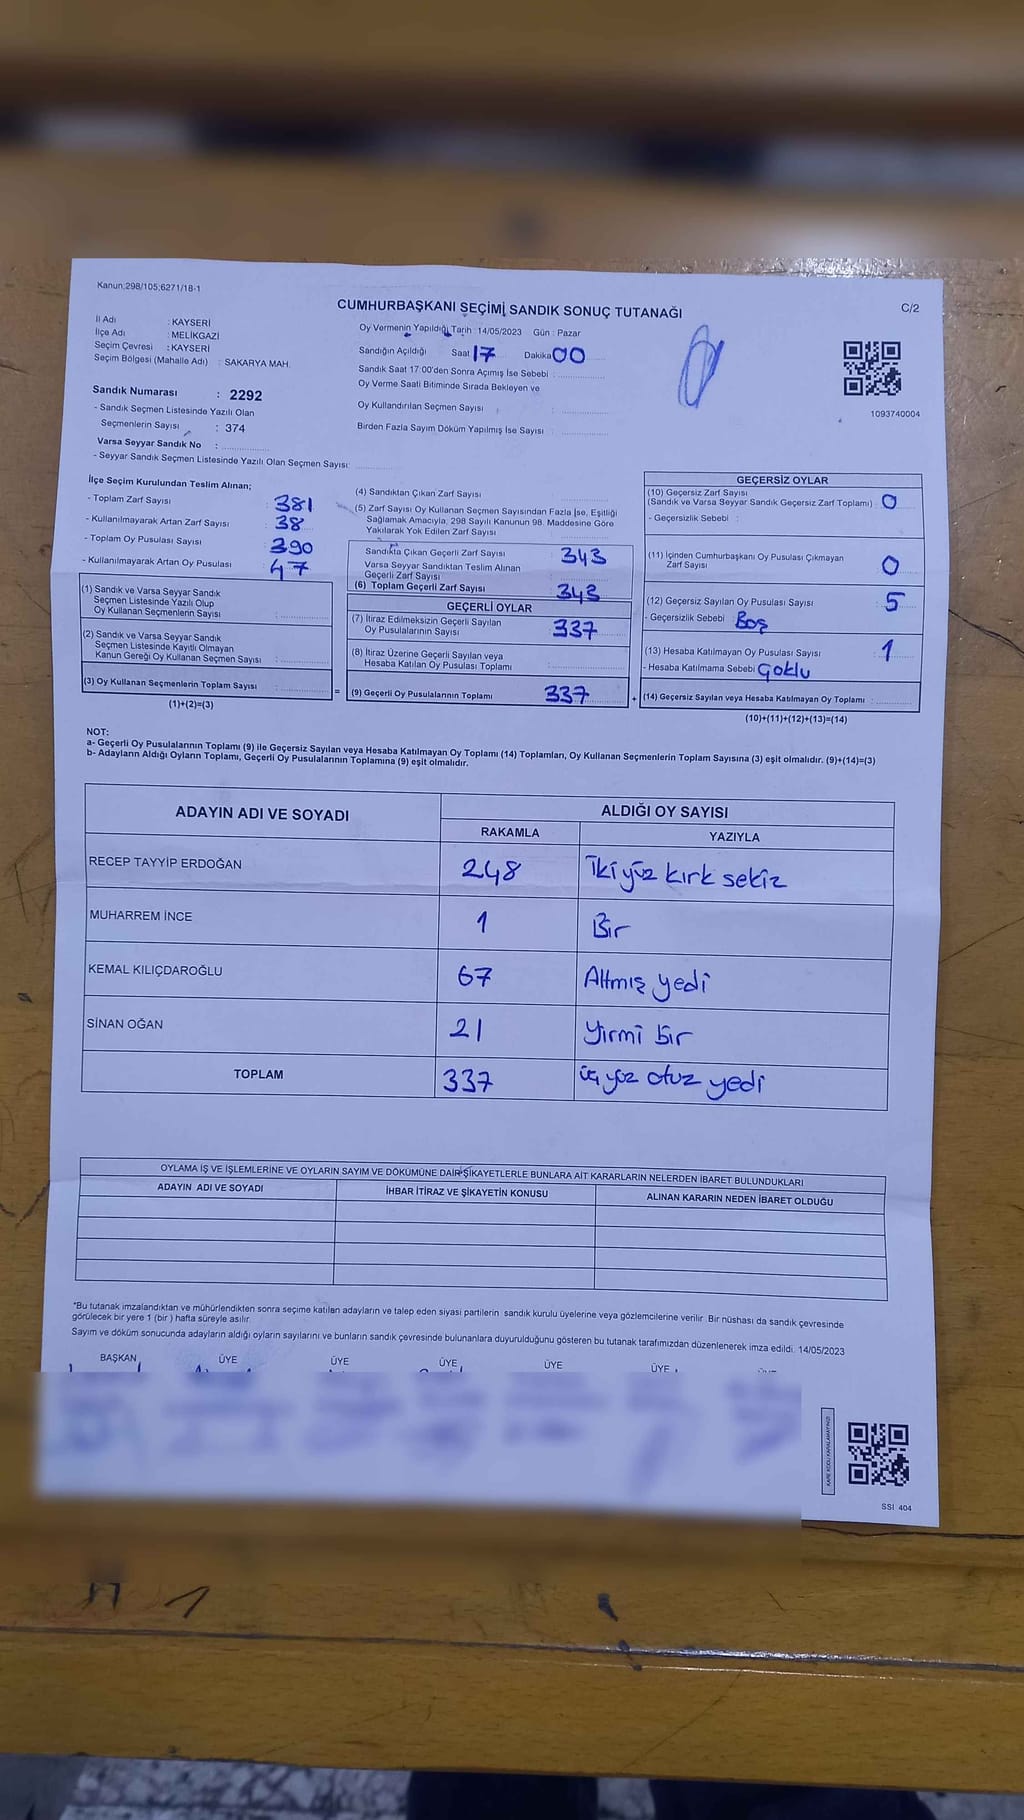 Kanun:298/105;6271/18-1
C/2
CUMHURBAŞKANI SEÇİMİ SANDIK SONUÇ TUTANAĞI
İl Adı : KAYSERİ
İlçe Adı : MELİKGAZİ
Seçim Çevresi : KAYSERİ
Seçim Bölgesi (Mahalle Adı) : SAKARYA MAH.
Sandık Numarası : 2292
- Sandık Seçmen Listesinde Yazılı Olan
Seçmenlerin Sayısı : 374
Varsa Seyyar Sandık No :
- Seyyar Sandık Seçmen Listesinde Yazılı Olan Seçmen Sayısı:
Oy Vermenin Yapıldığı Tarih : 14/05/2023 Gün : Pazar
Sandığın Açıldığı Saat 17 Dakika 00
Sandık Saat 17:00'den Sonra Açımış İse Sebebi :
Oy Verme Saati Bitiminde Sırada Bekleyen ve
Oy Kullandırılan Seçmen Sayısı :
Birden Fazla Sayım Döküm Yapılmış İse Sayısı :
1093740004
İlçe Seçim Kurulundan Teslim Alınan;
- Toplam Zarf Sayısı : 381
- Kullanılmayarak Artan Zarf Sayısı : 38
- Toplam Oy Pusulası Sayısı : 390
- Kullanılmayarak Artan Oy Pusulası : 47
(1) Sandık ve Varsa Seyyar Sandık
Seçmen Listesinde Yazılı Olup
Oy Kullanan Seçmenlerin Sayısı :
(2) Sandık ve Varsa Seyyar Sandık
Seçmen Listesinde Kayıtlı Olmayan
Kanun Gereği Oy Kullanan Seçmen Sayısı :
(3) Oy Kullanan Seçmenlerin Toplam Sayısı :
(1)+(2)=(3)
=
(4) Sandıktan Çıkan Zarf Sayısı
(5) Zarf Sayısı Oy Kullanan Seçmen Sayısından Fazla İse, Eşitliği
Sağlamak Amacıyla, 298 Sayılı Kanunun 98. Maddesine Göre
Yakılarak Yok Edilen Zarf Sayısı
Sandıkta Çıkan Geçerli Zarf Sayısı : 343
Varsa Seyyar Sandıktan Teslim Alınan
Geçerli Zarf Sayısı
(6) Toplam Geçerli Zarf Sayısı : 343
GEÇERLİ OYLAR
(7) İtiraz Edilmeksizin Geçerli Sayılan
Oy Pusulalarının Sayısı : 337
(8) İtiraz Üzerine Geçerli Sayılan veya
Hesaba Katılan Oy Pusulası Toplamı
(9) Geçerli Oy Pusulalarının Toplamı 337
+
GEÇERSİZ OYLAR
(10) Geçersiz Zarf Sayısı
(Sandık ve Varsa Seyyar Sandık Geçersiz Zarf Toplamı) : 0
- Geçersizlik Sebebi :
(11) İçinden Cumhurbaşkanı Oy Pusulası Çıkmayan
Zarf Sayısı 0
(12) Geçersiz Sayılan Oy Pusulası Sayısı : 5
- Geçersizlik Sebebi Boş
(13) Hesaba Katılmayan Oy Pusulası Sayısı : 1
- Hesaba Katılmama Sebebi Çoklu
(14) Geçersiz Sayılan veya Hesaba Katılmayan Oy Toplamı :
(10)+(11)+(12)+(13)=(14)
NOT:
a- Geçerli Oy Pusulalarının Toplamı (9) ile Geçersiz Sayılan veya Hesaba Katılmayan Oy Toplamı (14) Toplamları, Oy Kullanan Seçmenlerin Toplam Sayısına (3) eşit olmalıdır. (9)+(14)=(3)
b- Adayların Aldığı Oyların Toplamı, Geçerli Oy Pusulalarının Toplamına (9) eşit olmalıdır.
ADAYIN ADI VE SOYADI ALDIĞI OY SAYISI
RAKAMLA YAZIYLA
RECEP TAYYİP ERDOĞAN 248 İki yüz kırk sekiz
MUHARREM İNCE 1 Bir
KEMAL KILIÇDAROĞLU 67 Altmış yedi
SİNAN OĞAN 21 Yirmi bir
TOPLAM 337 üç yüz otuz yedi
OYLAMA İŞ VE İŞLEMLERİNE VE OYLARIN SAYIM VE DÖKÜMÜNE DAİR ŞİKAYETLERLE BUNLARA AİT KARARLARIN NELERDEN İBARET BULUNDUKLARI
ADAYIN ADI VE SOYADI İHBAR İTİRAZ VE ŞİKAYETİN KONUSU ALINAN KARARIN NEDEN İBARET OLDUĞU
"Bu tutanak imzalandıktan ve mühürlendikten sonra seçime katılan adayların ve talep eden siyasi partilerin sandık kurulu üyelerine veya gözlemcilerine verilir. Bir nüshası da sandık çevresinde
görülecek bir yere 1 (bir ) hafta süreyle asılır.
Sayım ve döküm sonucunda adayların aldığı oyların sayılarını ve bunların sandık çevresinde bulunanlara duyurulduğunu gösteren bu tutanak tarafımızdan düzenlenerek imza edildi. 14/05/2023
BAŞKAN ÜYE ÜYE ÜYE ÜYE ÜYE
SSI 404